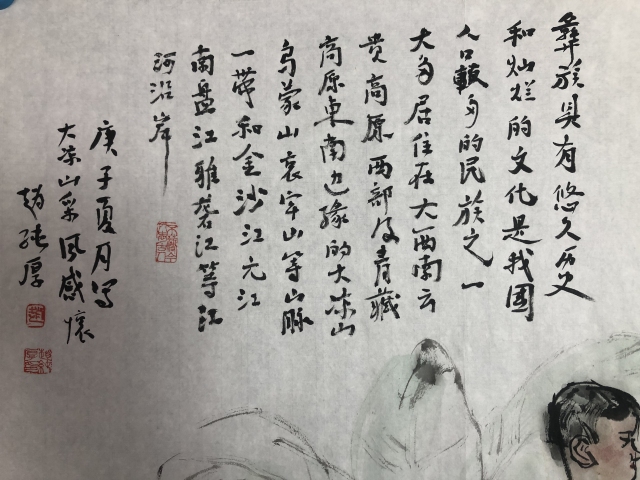 彝族具有悠久历史
和灿烂的文化是我国
人口较多的民族之一
大多居住在大西南云
贵高原西部及青藏
高原东南边缘的大凉山
乌蒙山哀牢山等山脉
一带和金沙江元江
南盘江雅砻江等江
河沿岸
庚子夏月写
大凉山采风感怀
赵纯厚